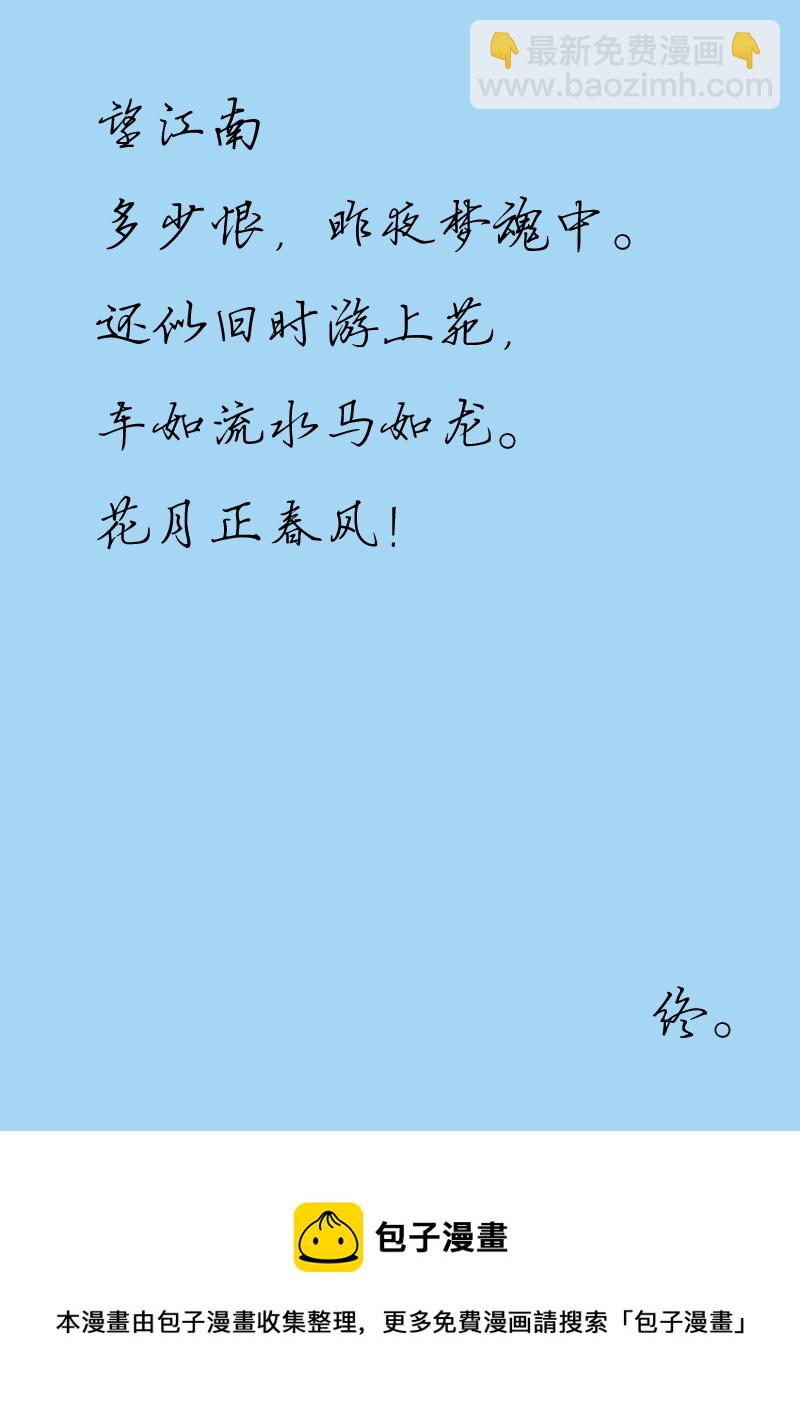 👇最新免费漫画👇
www.baozimh.com
望江南
多少恨，昨夜梦魂中。
还似旧时游上苑，
车如流水马如龙。
花月正春风！
终。
包子漫畫
本漫畫由包子漫畫收集整理，更多免費漫画請搜索「包子漫畫」